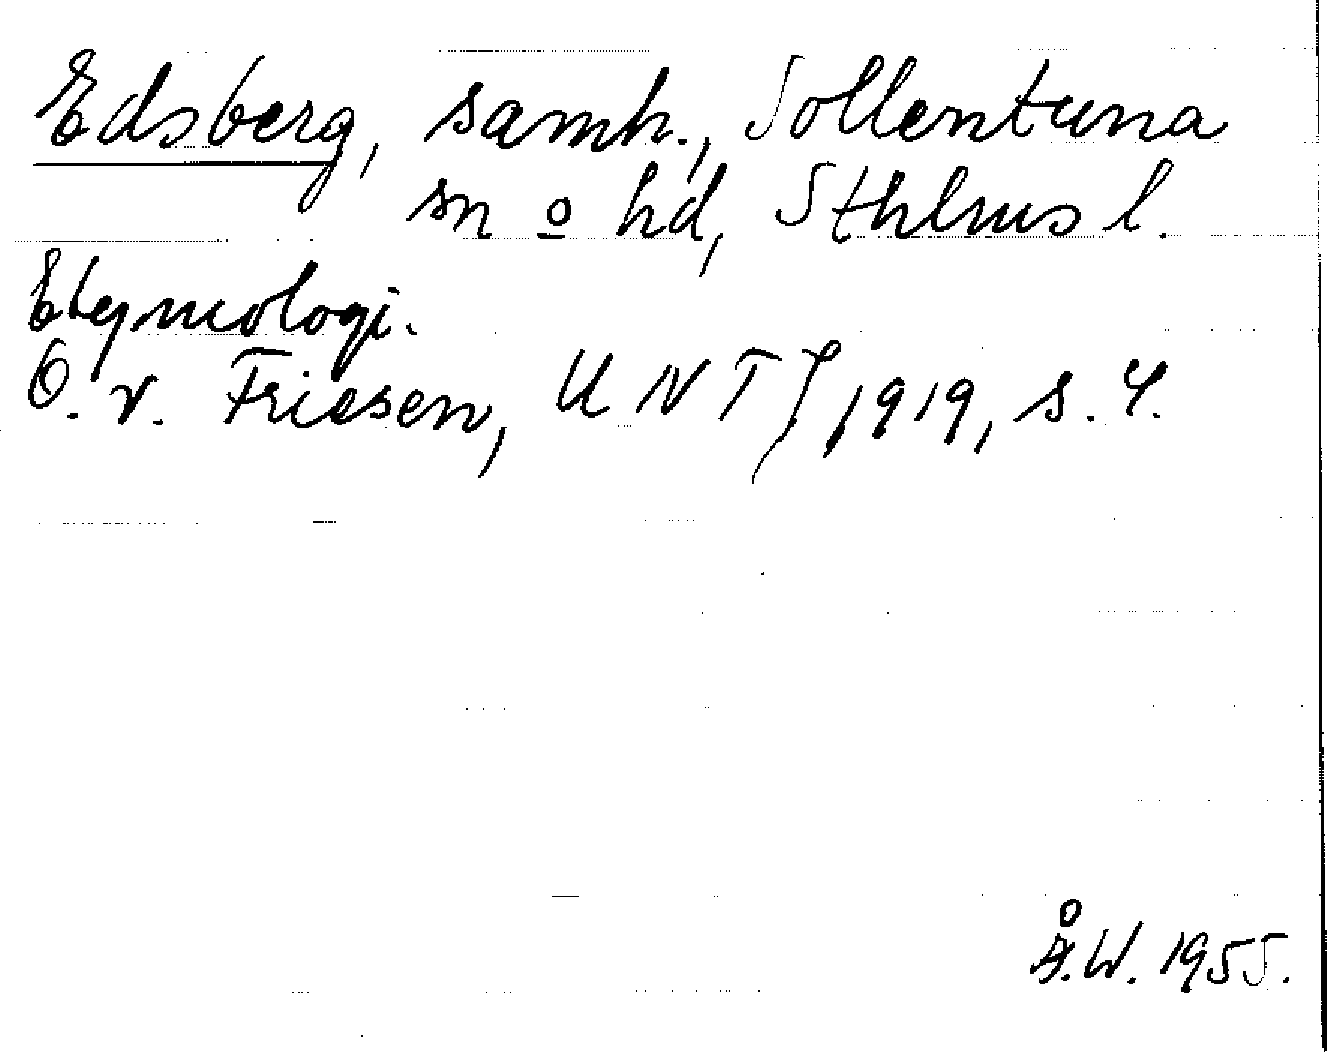 Edsberg, samh., Sollentuna
sn o hd, Sthlms l.
Etymologi.
O. v. Friesen, UNT 1919, s. 4.
Å.W. 1955.